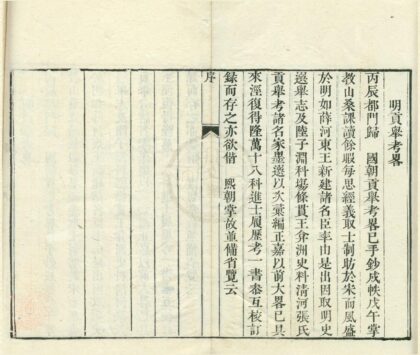 明貢舉考畧
丙辰都門歸　國朝貢舉考畧已手鈔成帙戊午掌
教山桑課讀餘暇每思經義取士制昉於宋而風盛
於明如薛河東王新建諸名臣率由是出因取明史
選舉志及陸子淵科塲條貫王弇洲史料淸河張氏
貢舉考諸名家墨選以次彙編正嘉以前大畧已具
來涇復得隆萬十八科進士履歷考一書叅互校訂
録而存之亦欲備　熙朝掌故並備省覽云
序